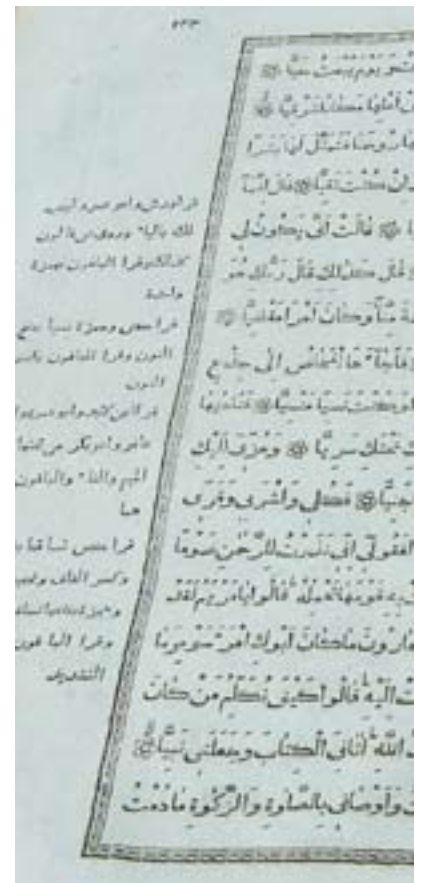 وَيَوْمَ يُبْعَثُ حَيًّا
أَهْلِهَا مَكَانًا شَرْقِيًّا
رُوحَنَا فَتَمَثَّلَ لَهَا بَشَرًا
إِنْ كُنْتَ تَقِيًّا قَالَ إِنَّمَا
قَالَتْ أَنَّى يَكُونُ لِي
قَالَ كَذَلِكَ قَالَ رَبُّكِ هُوَ
مِنَّا وَكَانَ أَمْرًا مَقْضِيًّا
الْمَخَاضُ إِلَى جِذْعِ
وَكُنْتُ نَسْيًا مَنْسِيًّا فَنَادَيهَا
تَحْتَكِ سَرِيًّا وَهُزِّي إِلَيْكِ
جَنِيًّا فَكُلِي وَاشْرَبِي وَقَرِّي
فَقُولِي إِنِّي نَذَرْتُ لِلرَّحْمٰنِ صَوْمًا
بِهِ قَوْمَهَا تَحْمِلُهُ قَالُوا يَامَرْيَمُ لَقَدْ
هَارُونَ مَا كَانَ أَبُوكِ امْرَأَ سَوْءٍ وَمَا
إِلَيْهِ قَالُوا كَيْفَ نُكَلِّمُ مَنْ كَانَ
اللَّهِ آتَانِيَ الْكِتَابَ وَجَعَلَنِي نَبِيًّا
وَأَوْصَانِي بِالصَّلٰوةِ وَالزَّكٰوةِ مَا دُمْتُ
قرا ورش وابو عمرو ليهب
لك بالياء وروى قالون
كذلك وقرا الباقون بهمزة
قرا حفص وحمزة نسيا بفتح
النون وقرا الباقون بكسر
النون
قرا ابن كثير وابو عمرو
عامر وابو بكر من تحتها
الميم والتاء والباقون
قرا حفص تساقط
وكسر القاف
وقرا الباقون
التشديد